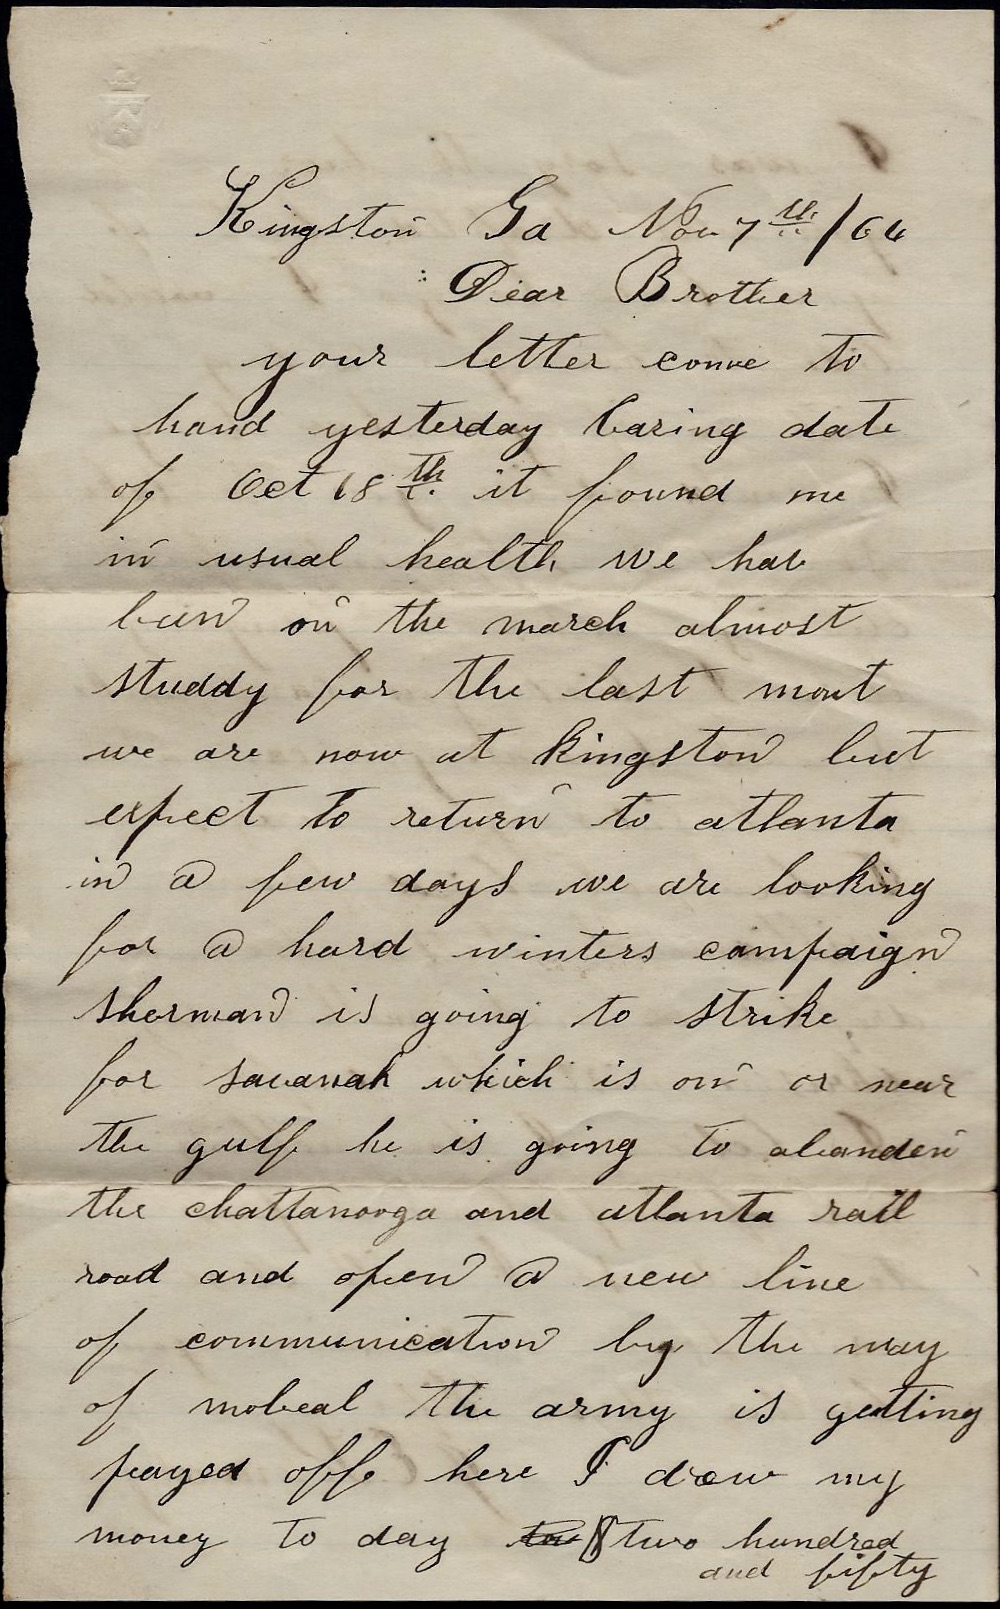 Kingston Ga Nov 7th /64
Dear Brother
your letter come to
hand yesterday baring date
of Oct 18th. it found me
in usual health we hav
been on the march almost
studdy for the last mont
we are now at Kingston but
expect to return to atlanta
in a few days we are looking
for a hard winters campaign
Sherman is going to strike
for savanah which is on or near
the gulf he is going to abanden
the chattanooga and atlanta rail
road and open a new line
of communication by the way
of mobeal the army is getting
payed off here I drew my
money to day two hundred
and fifty